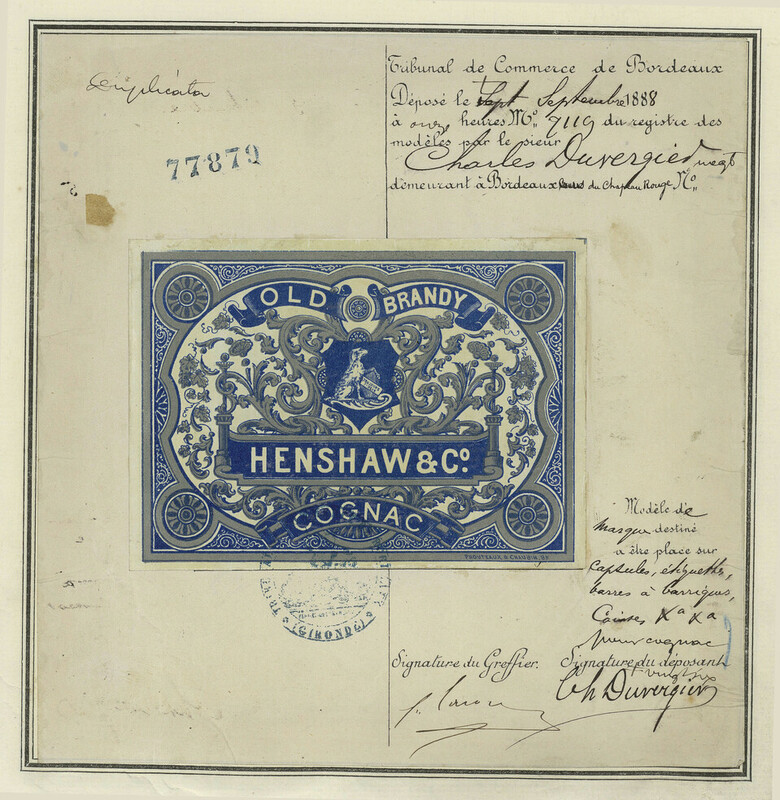 Duplicata
77879
Tribunal de Commerce de Bordeaux
Déposé le Sept Septembre 1888
à onze heures No. 7119 du registre des
modèles par le sieur
Charles Duvergier
demeurant à Bordeaux du Chapeau Rouge No.
OLD BRANDY
HENSHAW & Co.
COGNAC
(GIRONDE)
Modèle de
marque destiné
à être place sur
Capsules, étiquettes,
barres à barriques,
Caisses Xa Xa
pour cognac
Signature du Greffier. Signature du déposant
Ch Duvergier